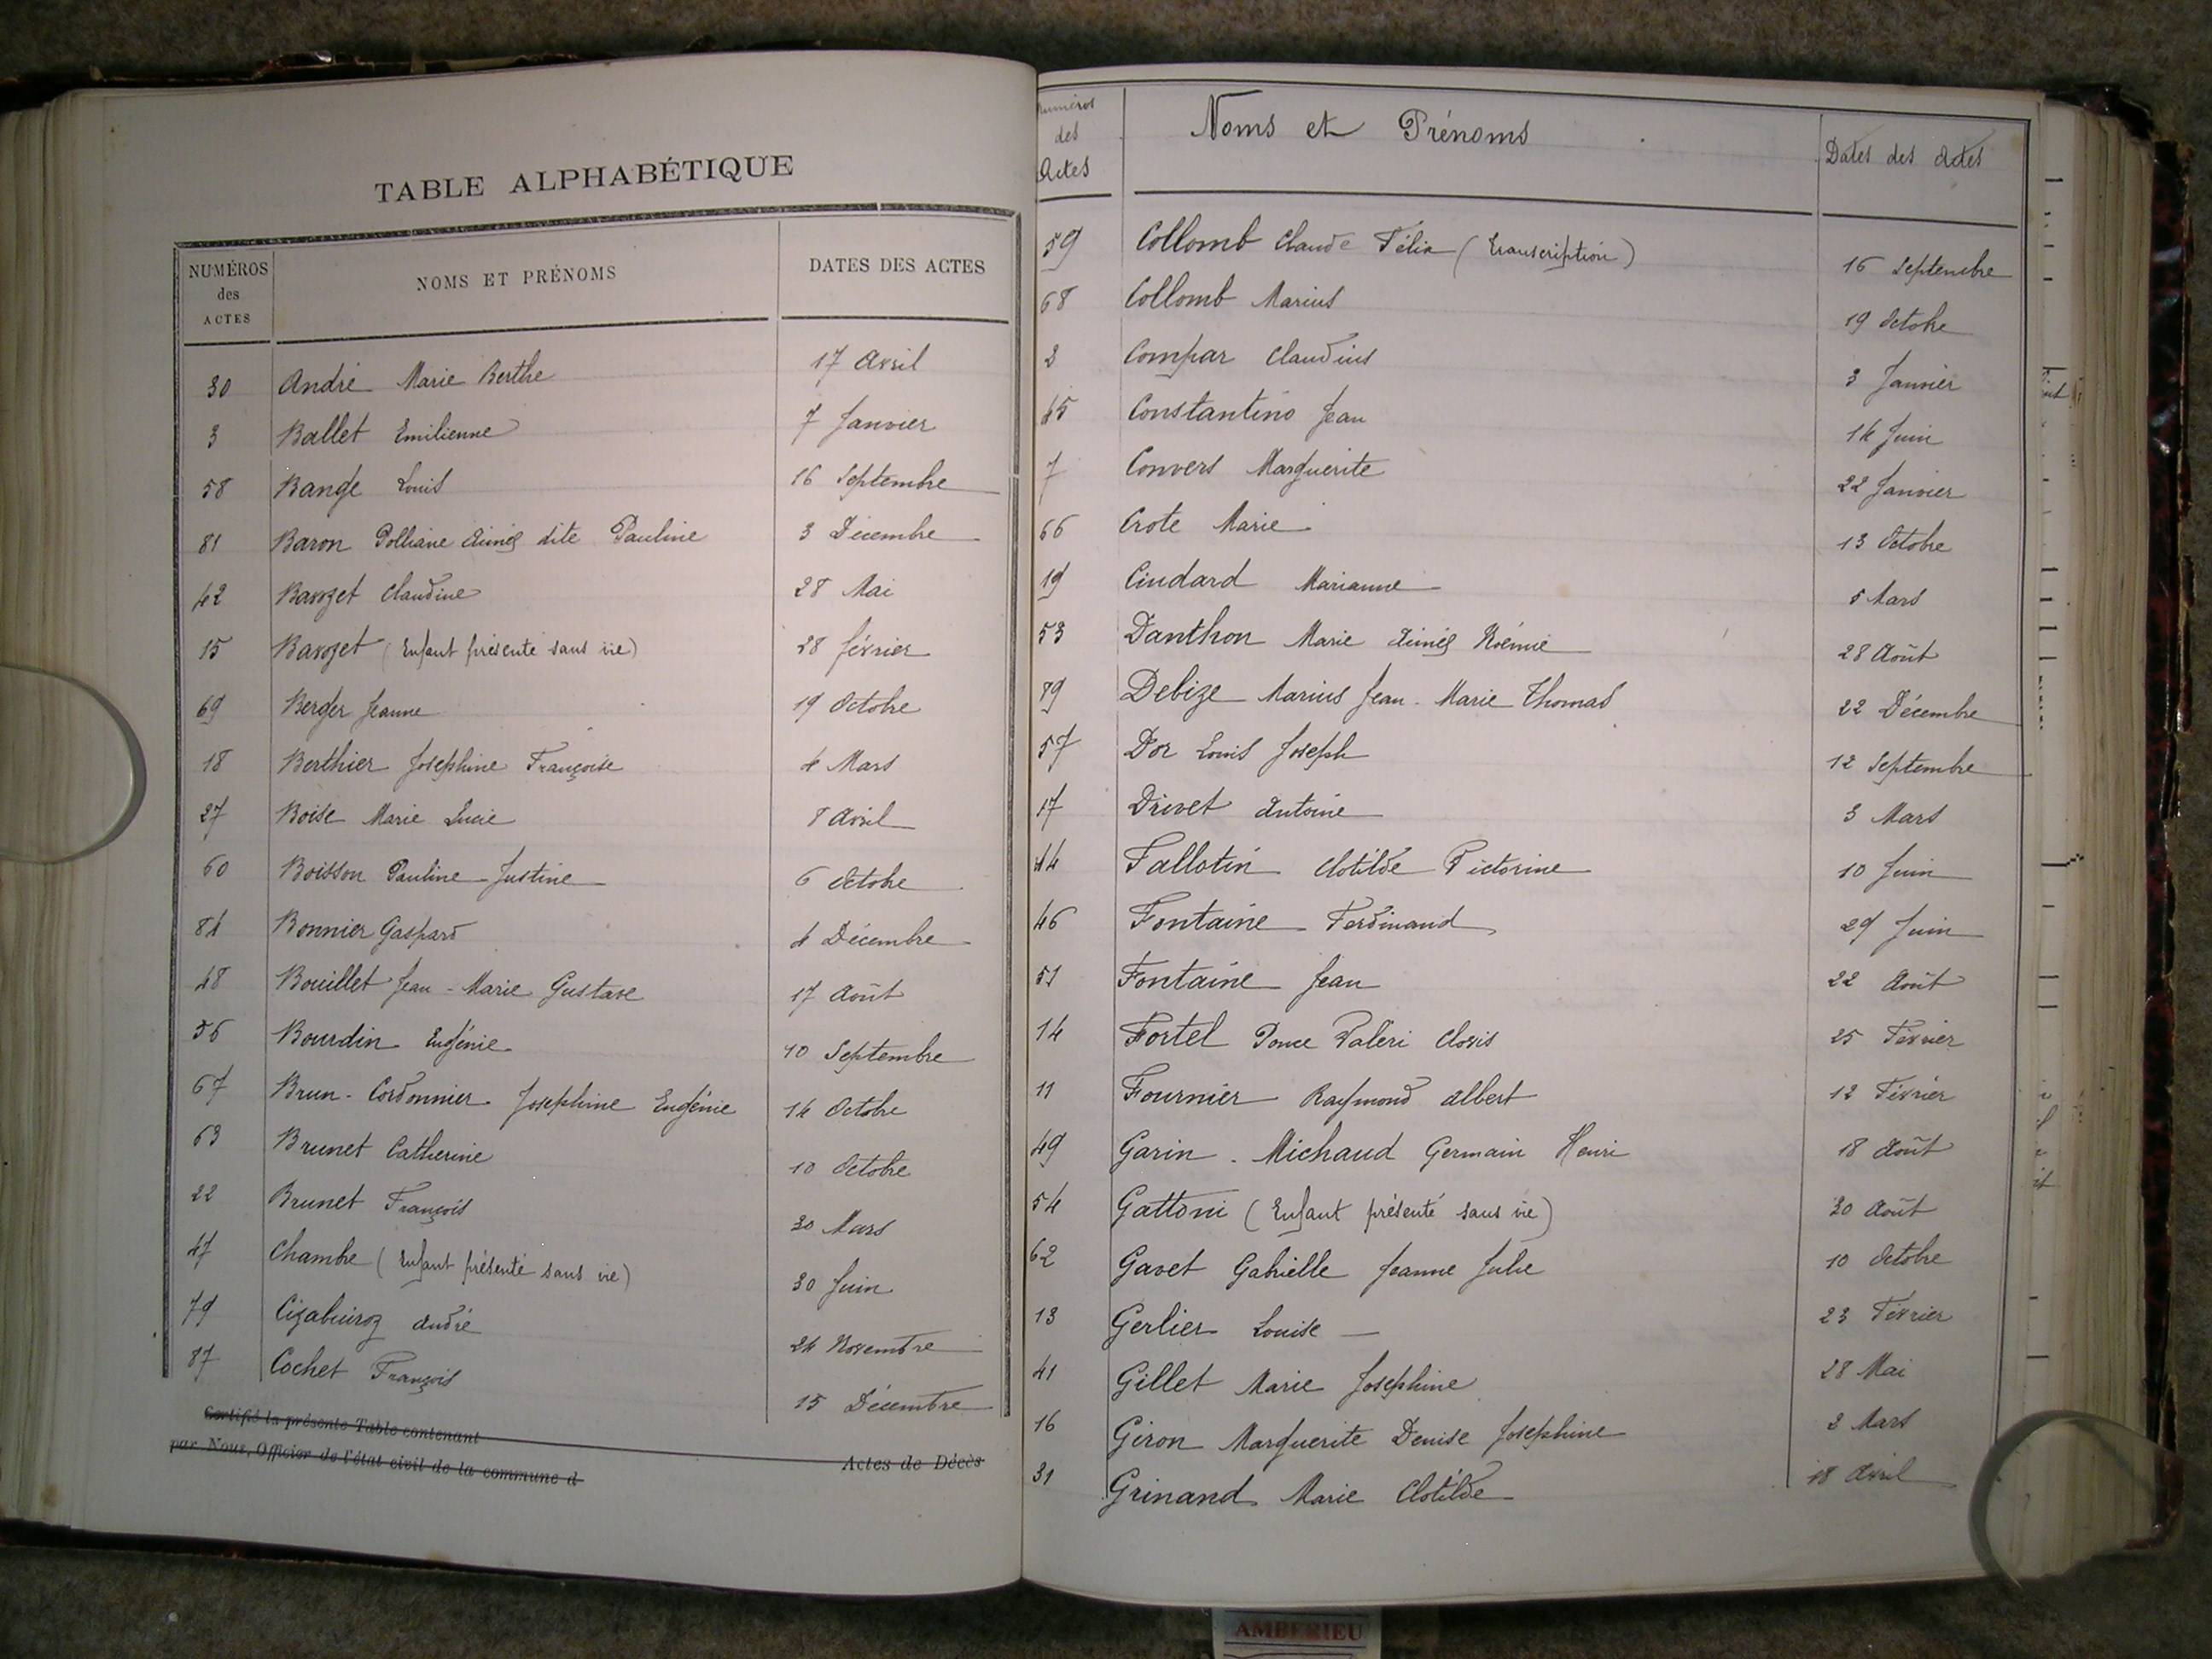 TABLE ALPHABÉTIQUE
NUMÉROS des ACTES NOMS ET PRÉNOMS DATES DES ACTES
30 André Marie Berthe 17 Avril
3 Ballet Emilienne 7 Janvier
58 Bange Louis 16 Septembre
81 Baron Polliane Aimée dite Pauline 3 Décembre
42 Bavozet Claudine 28 Mai
15 Bavozet (Enfant présenté sans vie) 28 février
69 Berger Jeanne 19 Octobre
18 Berthier Joséphine Françoise 4 Mars
27 Boise Marie Lucie 8 Avril
60 Boisson Pauline Justine 6 Octobre
84 Bonnier Gaspard 4 Décembre
48 Bouillet Jean-Marie Gustave 17 Août
56 Bourdin Eugénie 10 Septembre
67 Brun-Cordonnier Joséphine Eugénie 14 Octobre
63 Brunet Catherine 10 Octobre
22 Brunet François 30 Mars
47 Chambre (Enfant présenté sans vie) 30 Juin
79 André 24 Novembre
87 Cochet François 15 Décembre
Certifié la présente Table contenant Actes de Décès
par Nous, Officier de l'état civil de la commune d
Numéros des Actes Noms et Prénoms Dates des Actes
59 Collomb Claude Félix (transcription) 16 Septembre
68 Collomb Marius 19 Octobre
2 Compar Claudius 3 Janvier
45 Constantino Jean 14 Juin
7 Convers Marguerite 22 Janvier
66 Crote Marie 13 Octobre
19 Cindard Marianne 5 Mars
53 Danthon Marie Aimée Noémie 28 Août
89 Debize Marius Jean-Marie Thomas 22 Décembre
57 Dor Louis Joseph 12 Septembre
17 Drivet Antoine 3 Mars
44 Fallotin Clotilde Victorine 10 Juin
46 Fontaine Ferdinand 29 Juin
51 Fontaine Jean 22 Août
14 Fortel Ponce Valéri Clovis 25 Février
11 Fournier Raymond Albert 12 Février
49 Garin-Michaud Germain Henri 18 Août
54 Gattoni (Enfant présenté sans vie) 30 Août
62 Gavet Gabrielle Jeanne Julie 10 Octobre
13 Gerlier Louise 23 Février
41 Gillet Marie Joséphine 28 Mai
16 Giron Marguerite Denise Joséphine 2 Mars
31 Grinand Marie Clotilde 18 Avril
AMBERIEU